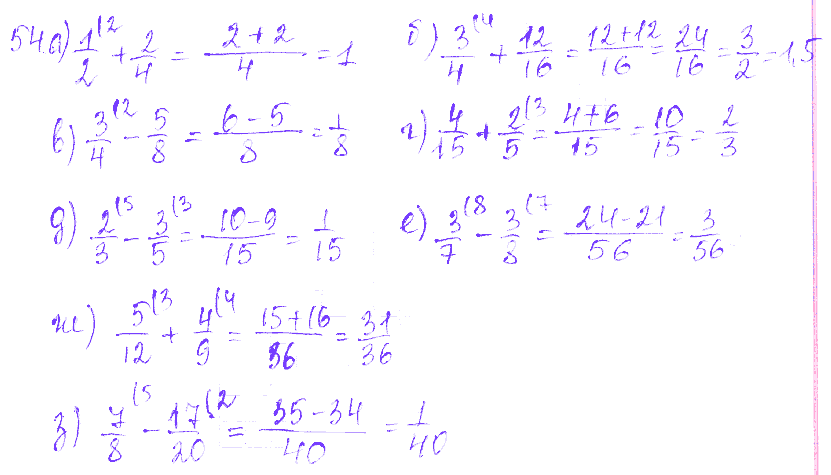 54.а) 1/2 (2 + 2/4 = (2+2)/4 = 1 б) 3/4 (4 + 12/16 = (12+12)/16 = 24/16 = 3/2 = 1,5
в) 3/4 (2 − 5/8 = (6−5)/8 = 1/8 г) 4/15 + 2/5 (3 = (4+6)/15 = 10/15 = 2/3
д) 2/3 (5 − 3/5 (3 = (10−9)/15 = 1/15 е) 3/7 (8 − 3/8 (7 = (24−21)/56 = 3/56
ж) 5/12 (3 + 4/9 (4 = (15+16)/36 = 31/36
з) 7/8 (5 − 17/20 (2 = (35−34)/40 = 1/40